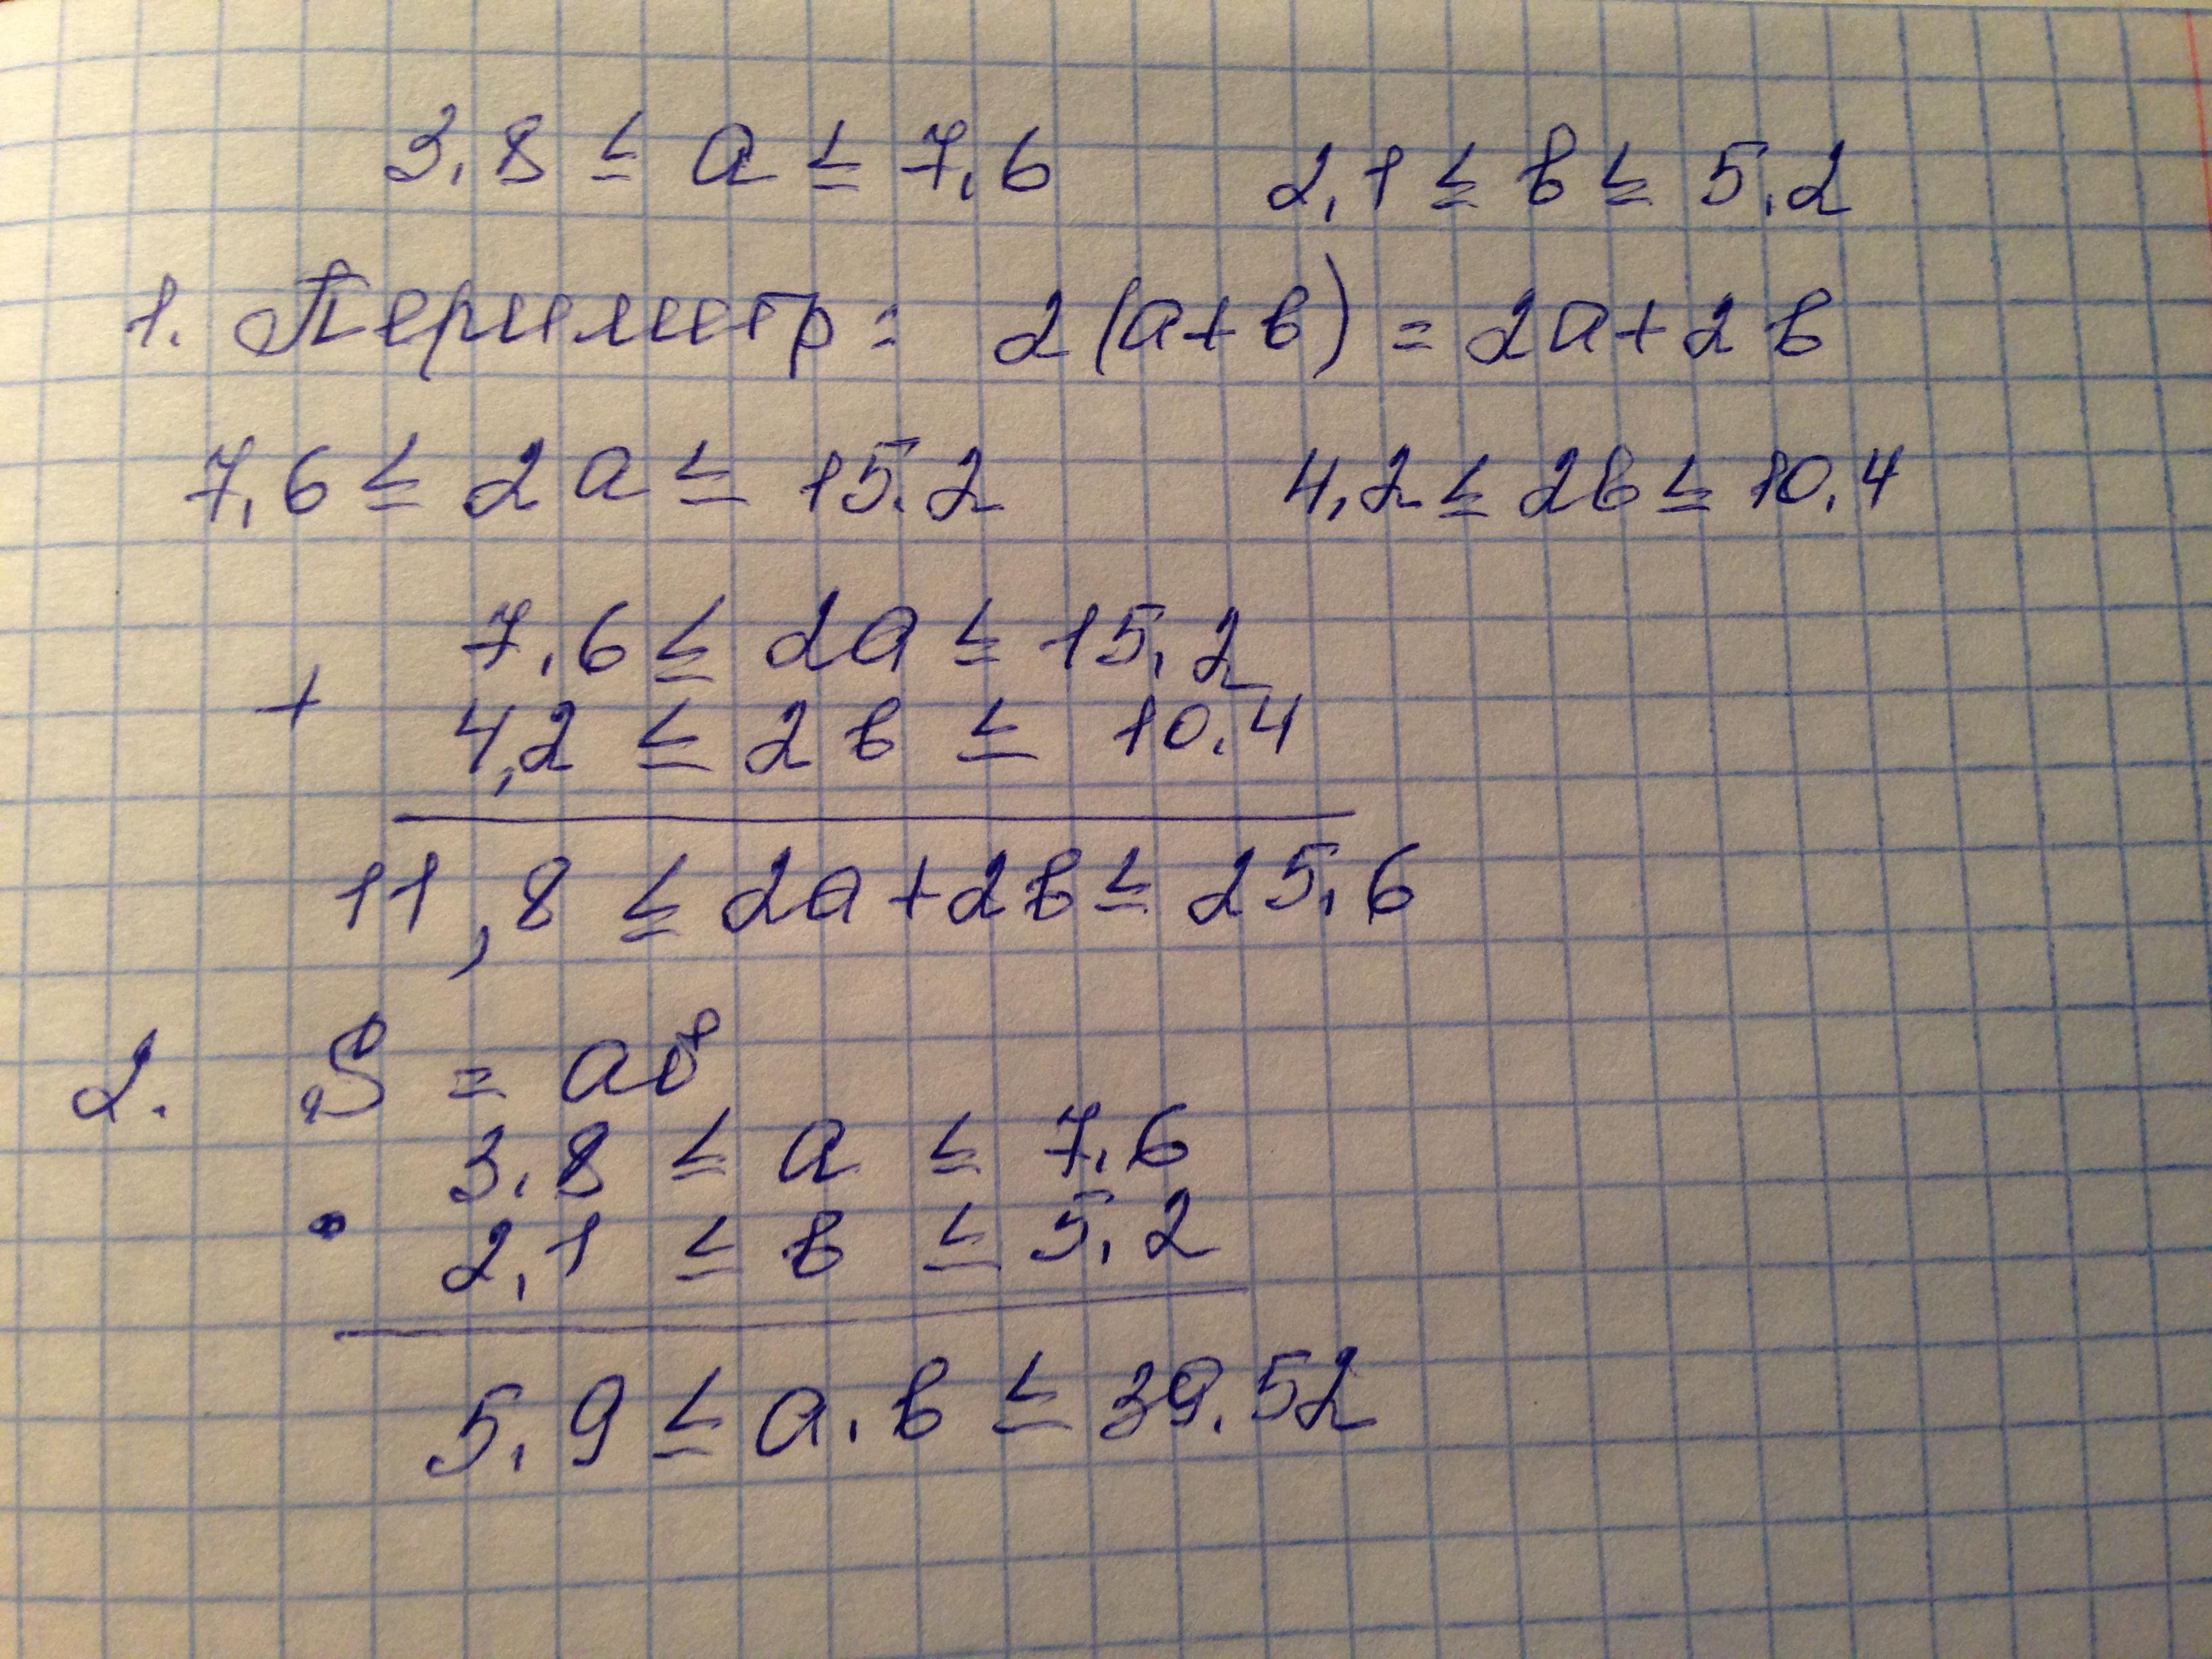 3,8 ≤ a ≤ 7,6 2,1 ≤ в ≤ 5,2
1. Периметр = 2(a+в) = 2a+2в
7,6 ≤ 2a ≤ 15,2 4,2 ≤ 2в ≤ 10,4
7,6 ≤ 2a ≤ 15,2
+
4,2 ≤ 2в ≤ 10,4
11,8 ≤ 2a+2в ≤ 25,6
2. S = aв
3,8 ≤ a ≤ 7,6
•
2,1 ≤ в ≤ 5,2
5,9 ≤ a.в ≤ 39,52